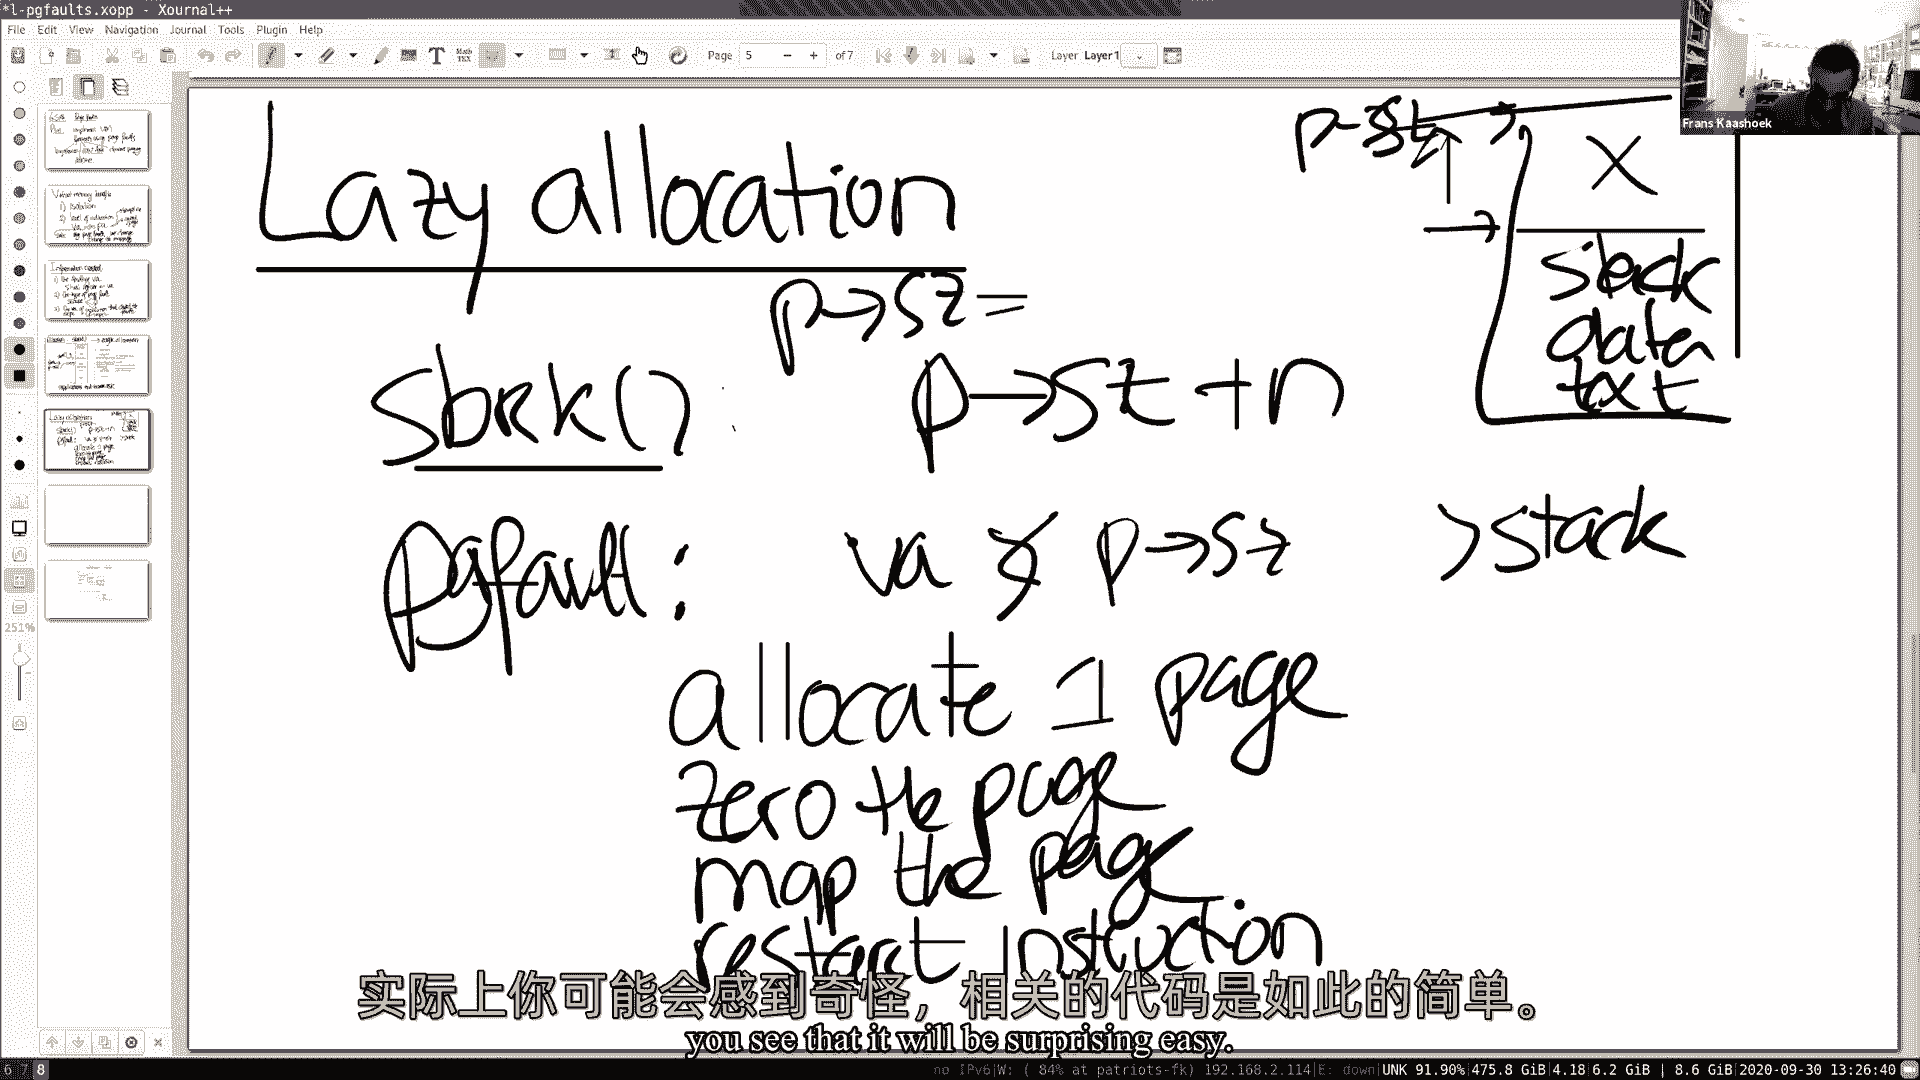 *l-pgfaults.xopp - Xournal++
File Edit View Navigation Journal Tools Plugin Help
Page 5 of 7 Layer Layer1
Frans Kaashoek
Lazy allocation
p→sz=
sbrk() : p→sz+n
pgfault: va < p→sz >stack
allocate 1 page
zero the page
map the page
restart instruction
p→sz
X
stack
data
text
251%
实际上你可能会感到奇怪，相关的代码是如此的简单。
you see that it will be surprising easy.
6 7 8 no IPv6|W: ( 84% at patriots-fk) 192.168.2.114|E: down|UNK 91.90%|475.8 GiB|4.18|6.2 GiB | 8.6 GiB|2020-09-30 13:26:40